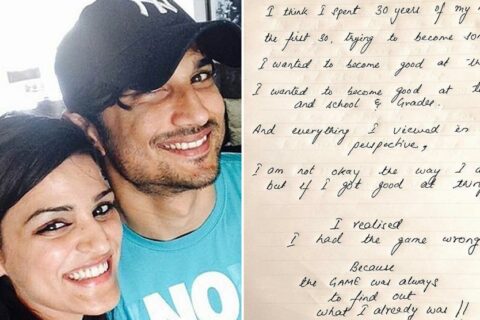 NO
I think I spent 30 years of my
the first 30, trying to become
I wanted to become good at
I wanted to become good at
and school & Grades.
And everything I viewed in
perspective,
I am not okay the way I
but if I got good at
I realised
I had the game wrong
Because
the GAME was always
to find out
what I already was !!